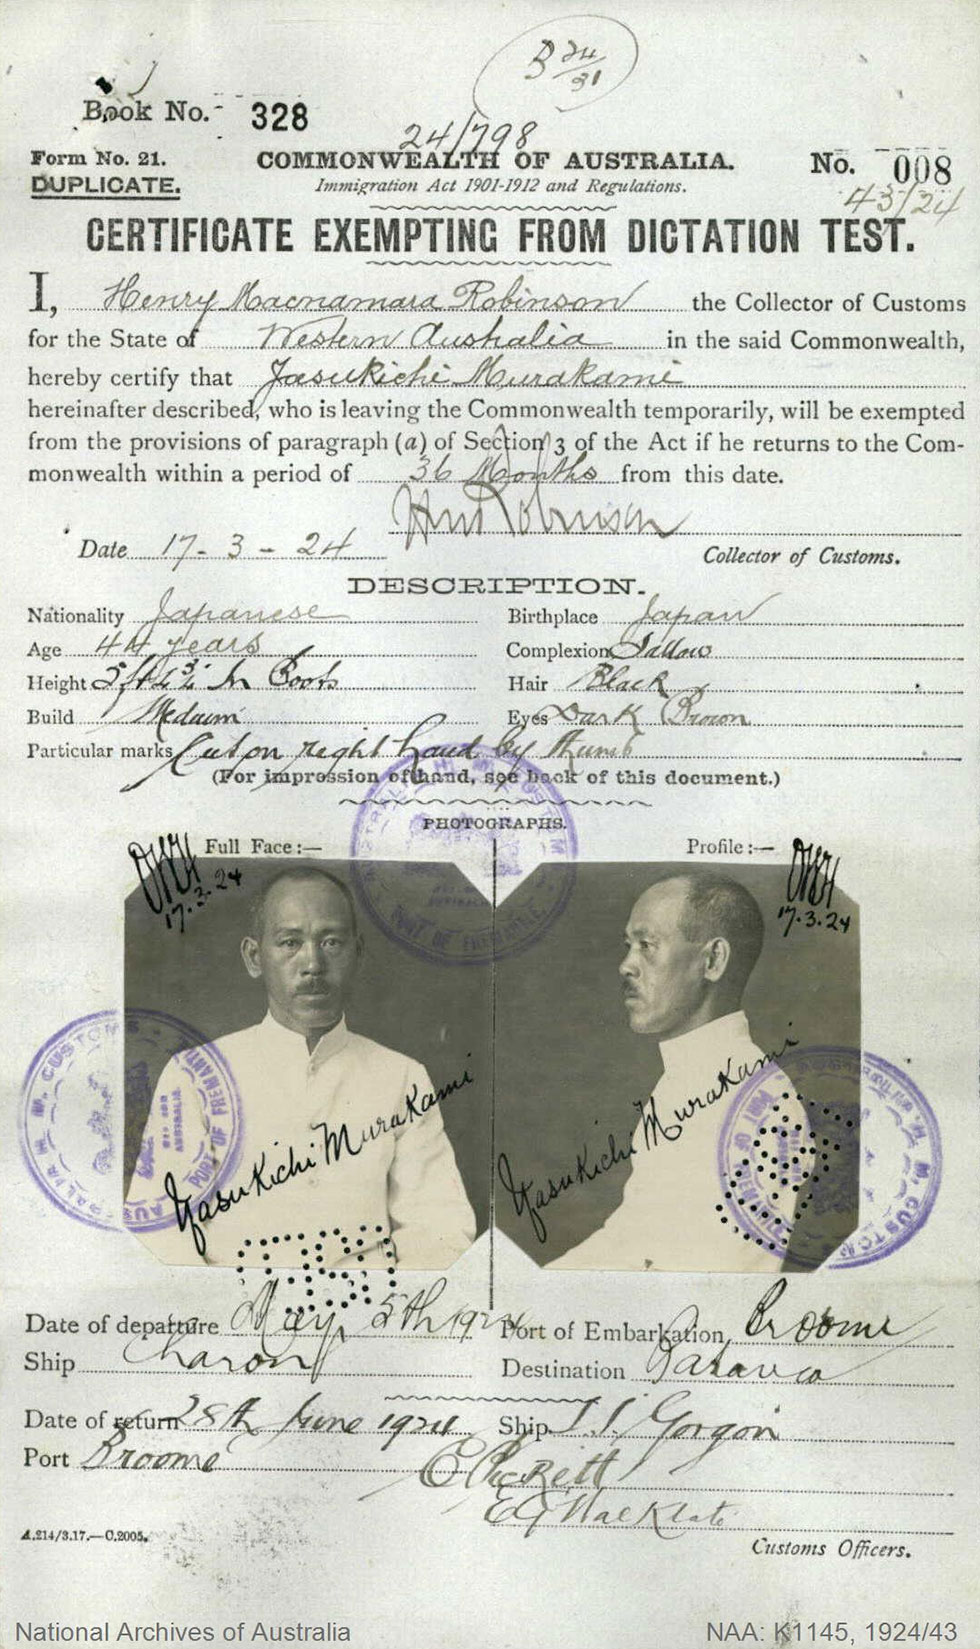 B 24/31
Book No. 328
24/798
Form No. 21.
COMMONWEALTH OF AUSTRALIA.
No. 008
DUPLICATE.
Immigration Act 1901-1912 and Regulations.
43/24
CERTIFICATE EXEMPTING FROM DICTATION TEST.
I, Henry Macnamara Robinson the Collector of Customs
for the State of Western Australia in the said Commonwealth,
hereby certify that Jasukichi Murakami
hereinafter described, who is leaving the Commonwealth temporarily, will be exempted
from the provisions of paragraph (a) of Section 3 of the Act if he returns to the Com-
monwealth within a period of 36 Months from this date.
HM Robinson
Date 17-3-24
Collector of Customs.
DESCRIPTION.
Nationality Japanese Birthplace Japan
Age 44 years Complexion Sallow
Height 5ft 4¾ In Boots Hair Black
Build Medium Eyes Dark Brown
Particular marks Cut on right hand by thumb
(For impression of hand, see back of this document.)
PHOTOGRAPHS.
Full Face :— Profile :—
17.3.24 17.3.24
H. M. CUSTOMS AUSTRALIA
PORT OF FREMANTLE
Yasukichi Murakami Yasukichi Murakami
Date of departure May 5th 1924 Port of Embarkation Broome
Ship Charon Destination Batavia
Date of return 28th June 1924 Ship S.S. Gorgon
Port Broome
Customs Officers.
A.214/3.17.—C.2005.
National Archives of Australia NAA: K1145, 1924/43